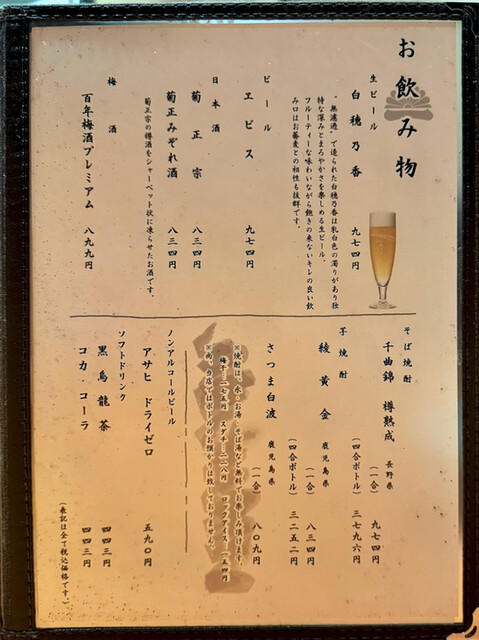 お飲み物
生ビール
白穂乃香 九七四円
"無濾過"で造られた白穂乃香は乳白色の濁りがあり独
特な深みとまろやかさを楽しめる生ビール。
フルーティーな味わいながら飽きの来ないキレの良い飲
み口はお蕎麦との相性も抜群です。
ビール
ヱビス 九七四円
日本酒
菊正宗 八三四円
菊正みぞれ酒 八三四円
菊正宗の樽酒をシャーベット状に凍らせたお酒です。
梅酒
百年梅酒プレミアム 八九九円
そば焼酎
千曲錦 樽熟成 長野県
(一合) 九七四円
(四合ボトル) 三七九六円
芋焼酎
綾黄金 鹿児島県
(一合) 八三四円
(四合ボトル) 三二五二円
さつま白波 鹿児島県
(一合) 八〇九円
※焼酎は、水・お湯・そば湯など無料でお楽しみ頂けます。
梅干…二七五円 スダチ…二一八円 ロックアイス…一五四円
※尚、当店ではボトルのお預かりは致しておりません。
ノンアルコールビール
アサヒ ドライゼロ 五九〇円
ソフトドリンク
黒烏龍茶 四四三円
コカ・コーラ 四四三円
(表記は全て税込価格です。)